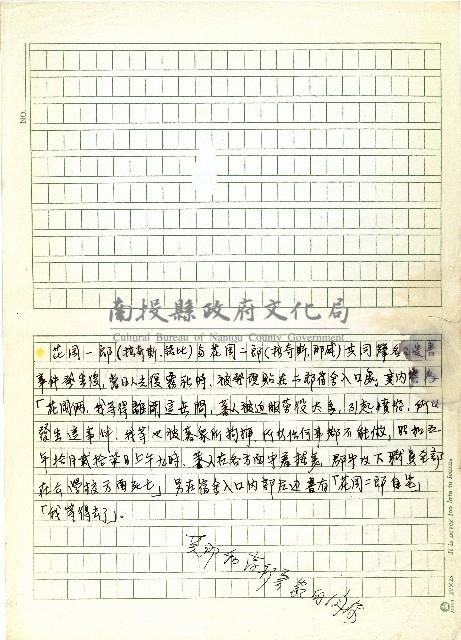 NO.
南投縣政府文化局
Cultural Bureau of Nantou County Government
花岡一郎(拉奇斯.諾比)与花岡二郎(拉奇斯.那威)共同聯名遺書
事件發生後,當日人去後霧社時,被發現貼在二郎宿舍入口處,其內
「花岡兩,我等得離開這世間,蕃人被迫服勞役太多,引起憤怒,所以
發生這事件,我等也被蕃眾所拘捕,所以任何事都不能做,昭和五
年拾月貳拾柒日上午九時,蕃人在各方面守著,郡守以下職員全部
在公學校方面死亡」,另在宿舍入口內部左邊書有「花岡二郎自宅」
「我等得去了」.